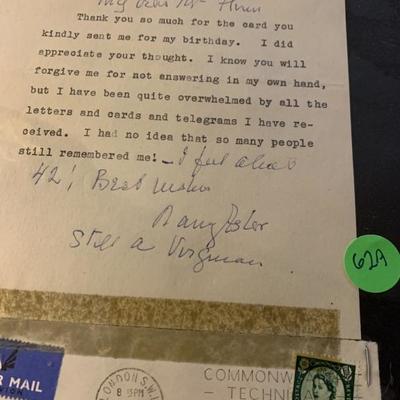 My dear Mr
Thank you so much for the card you
kindly sent me for my birthday.  I did
appreciate your thought.  I know you will
forgive me for not answering in my own hand,
but I have been quite overwhelmed by all the
letters and cards and telegrams I have re-
ceived.  I had no idea that so many people
still remembered me! – I feel about
42! Best wishes
Nancy Astor
Still a Virginian
62A
R MAIL
LONDON S.W.1
8 PM
COMMONW
– TECHNI